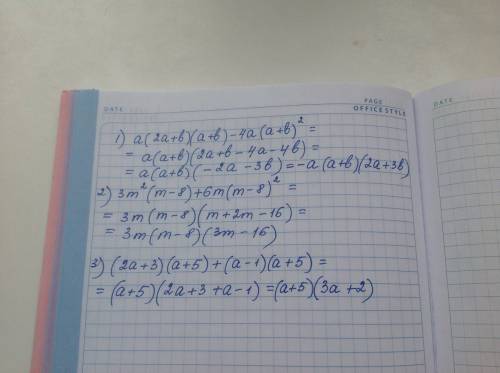 DATE
PAGE
OFFICE STYLE
DATE
1) a(2a+b)(a+b)-4a(a+b)² =
= a(a+b)(2a+b-4a-4b) =
= a(a+b)(-2a-3b) = -a(a+b)(2a+3b)
2) 3m²(m-8)+6m(m-8)² =
= 3m(m-8)(m+2m-16) =
= 3m(m-8)(3m-16)
3) (2a+3)(a+5)+(a-1)(a+5) =
= (a+5)(2a+3+a-1) = (a+5)(3a+2)